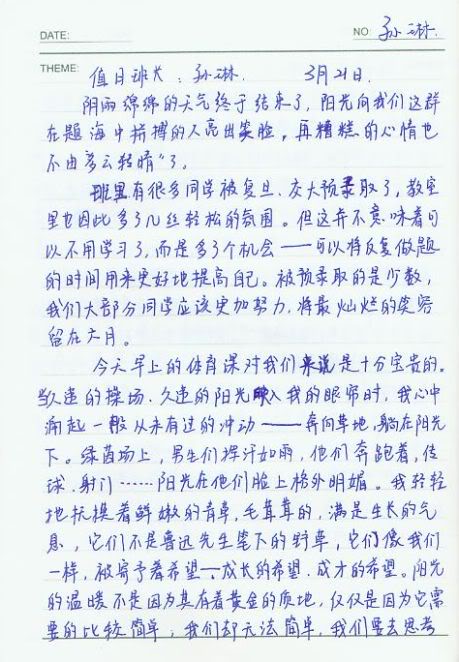 DATE: NO: 孙琳.
THEME: 值日班长：孙琳 3月21日.
阴雨绵绵的天气终于结束了,阳光向我们这群
在题海中拼搏的人亮出笑脸，再糟糕的心情也
不由"多云转晴"了。
班里有很多同学被复旦、交大预录取了,教室
里也因此多了几丝轻松的氛围。但这并不意味着可
以不用学习了,而是多了个机会——可以将反复做题
的时间用来更好地提高自己。被预录取的是少数,
我们大部分同学应该更加努力,将最灿烂的笑容
留在六月。
今天早上的体育课对我们来说是十分宝贵的。
当久违的操场、久违的阳光映入我的眼帘时,我心中
涌起一般从未有过的冲动——奔向草地,躺在阳光
下。绿茵场上,男生们挥汗如雨,他们奔跑着,传
球、射门……阳光在他们脸上格外明媚。我轻轻
地抚摸着鲜嫩的青草,毛茸茸的,满是生长的气
息,它们不是鲁迅先生笔下的野草,它们像我们
一样,被寄予着希望——成长的希望、成才的希望。阳光
的温暖不是因为其有着黄金的质地,仅仅是因为它需
要的比较简单；我们却无法简单,我们要去思考